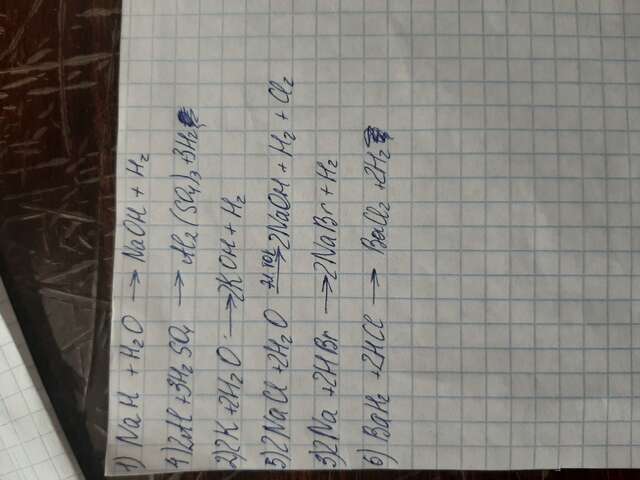 1) NaH + H₂O → NaOH + H₂
4) 2Al + 3H₂SO₄ → Al₂(SO₄)₃ + 3H₂
2) 2K + 2H₂O → 2KOH + H₂
5) 2NaCl + 2H₂O → 2NaOH + H₂ + Cl₂
3) 2Na + 2HBr → 2NaBr + H₂
6) BaH₂ + 2HCl → BaCl₂ + 2H₂